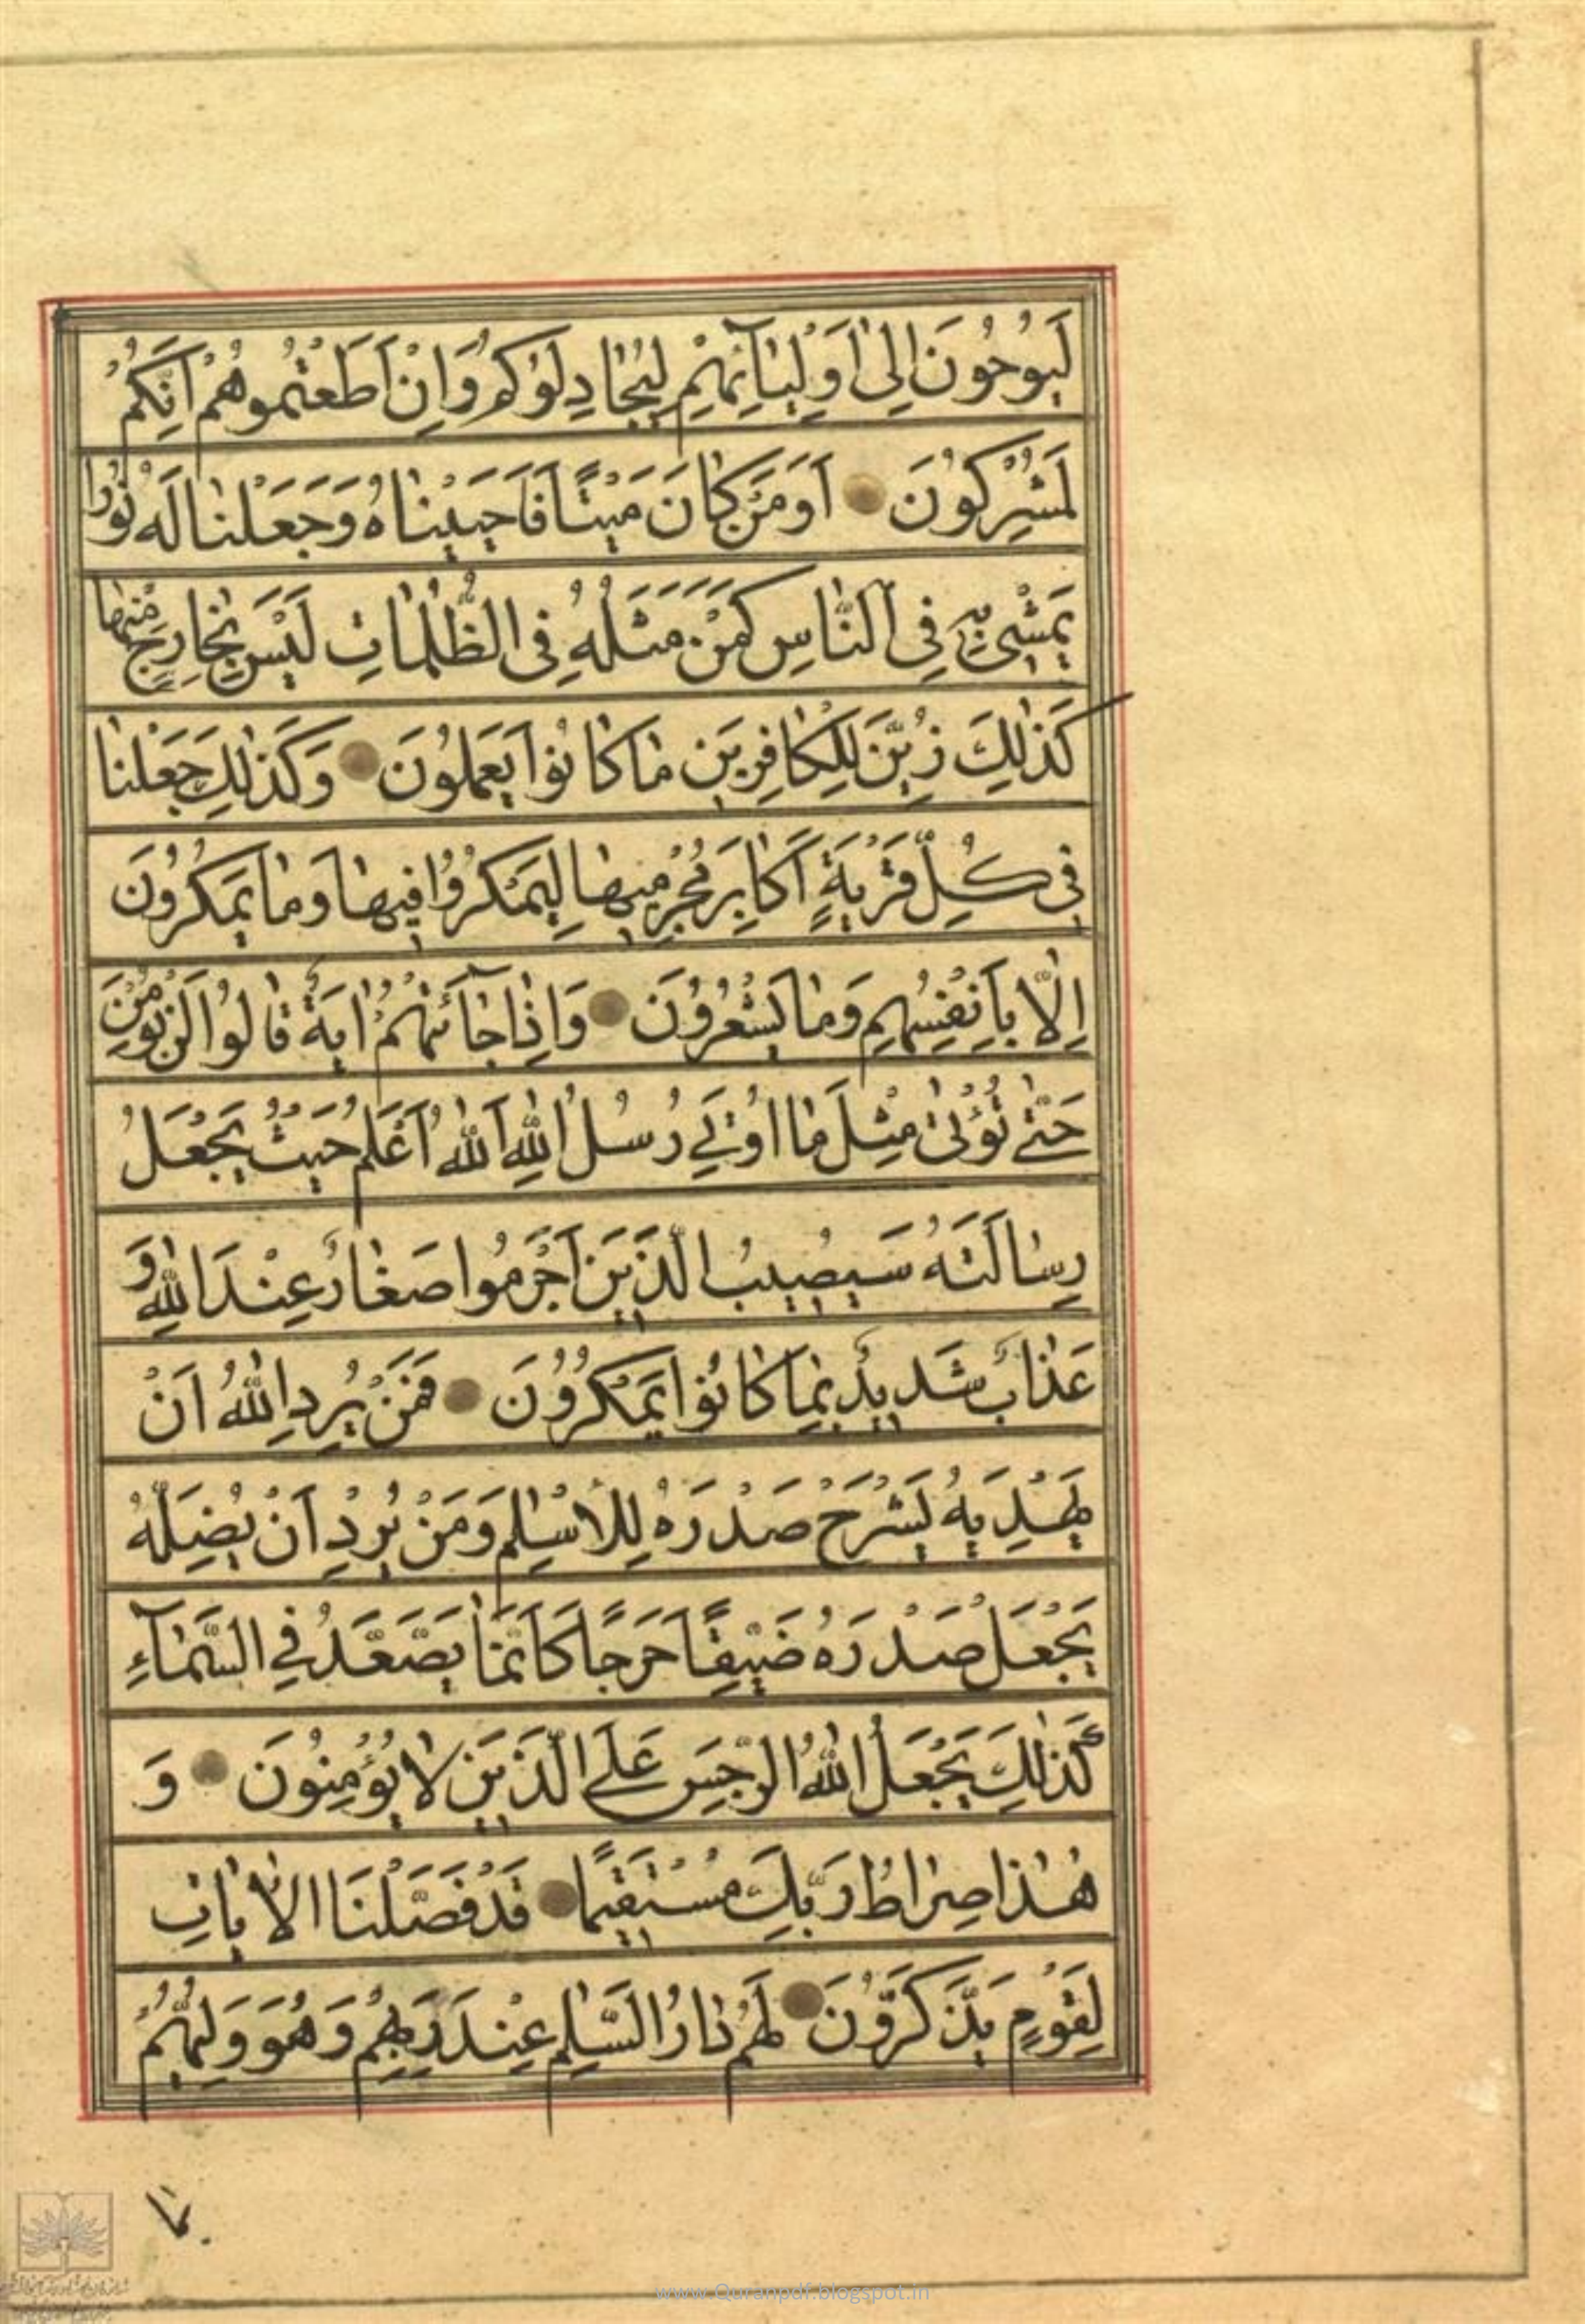 لَيُوحُونَ اِلىٰ اَوْلِيٰآئِهِمْ لِيُجٰادِلُوكُمْ وَاِنْ اَطَعْتُمُوهُمْ اِنَّكُمْ
لَمُشْرِكُونَ اَوَمَنْ كٰانَ مَيْتًا فَاَحْيَيْنٰاهُ وَجَعَلْنٰا لَهُ نُورًا
يَمْشِى بِهِ فِى النّٰاسِ كَمَنْ مَثَلُهُ فِى الظُّلُمٰاتِ لَيْسَ بِخٰارِجٍ مِنْهٰا
كَذٰلِكَ زُيِّنَ لِلْكٰافِرِينَ مٰا كٰانُوا يَعْمَلُونَ وَكَذٰلِكَ جَعَلْنٰا
فِى كُلِّ قَرْيَةٍ اَكٰابِرَ مُجْرِمِيهٰا لِيَمْكُرُوا فِيهٰا وَمٰا يَمْكُرُونَ
اِلّٰا بِاَنْفُسِهِمْ وَمٰا يَشْعُرُونَ وَاِذٰا جٰآئَتْهُمْ اٰيَةٌ قٰالُوا لَنْ نُؤْمِنَ
حَتّٰى نُؤْتىٰ مِثْلَ مٰا اُوتِىَ رُسُلُ اللّٰهِ اَللّٰهُ اَعْلَمُ حَيْثُ يَجْعَلُ
رِسٰالَتَهُ سَيُصِيبُ الَّذِينَ اَجْرَمُوا صَغٰارٌ عِنْدَ اللّٰهِ وَ
عَذٰابٌ شَدِيدٌ بِمٰا كٰانُوا يَمْكُرُونَ فَمَنْ يُرِدِ اللّٰهُ اَنْ
يَهْدِيَهُ يَشْرَحْ صَدْرَهُ لِلْاِسْلٰمِ وَمَنْ يُرِدْ اَنْ يُضِلَّهُ
يَجْعَلْ صَدْرَهُ ضَيِّقًا حَرَجًا كَاَنَّمٰا يَصَّعَّدُ فِى السَّمٰآءِ
كَذٰلِكَ يَجْعَلُ اللّٰهُ الرِّجْسَ عَلَى الَّذِينَ لٰا يُؤْمِنُونَ وَ
هٰذٰا صِرٰاطُ رَبِّكَ مُسْتَقِيمًا قَدْ فَصَّلْنَا الْاٰيٰاتِ
لِقَوْمٍ يَذَّكَّرُونَ لَهُمْ دٰارُ السَّلٰمِ عِنْدَ رَبِّهِمْ وَهُوَ وَلِيُّهُمْ
www.Quranpdf.blogspot.in